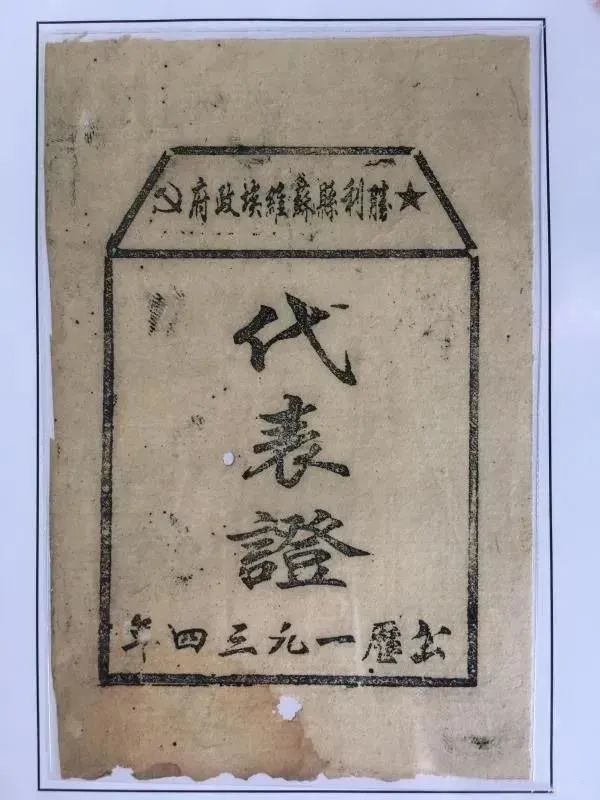 勝利縣蘇維埃政府
代
表
證
公歷一九三四年